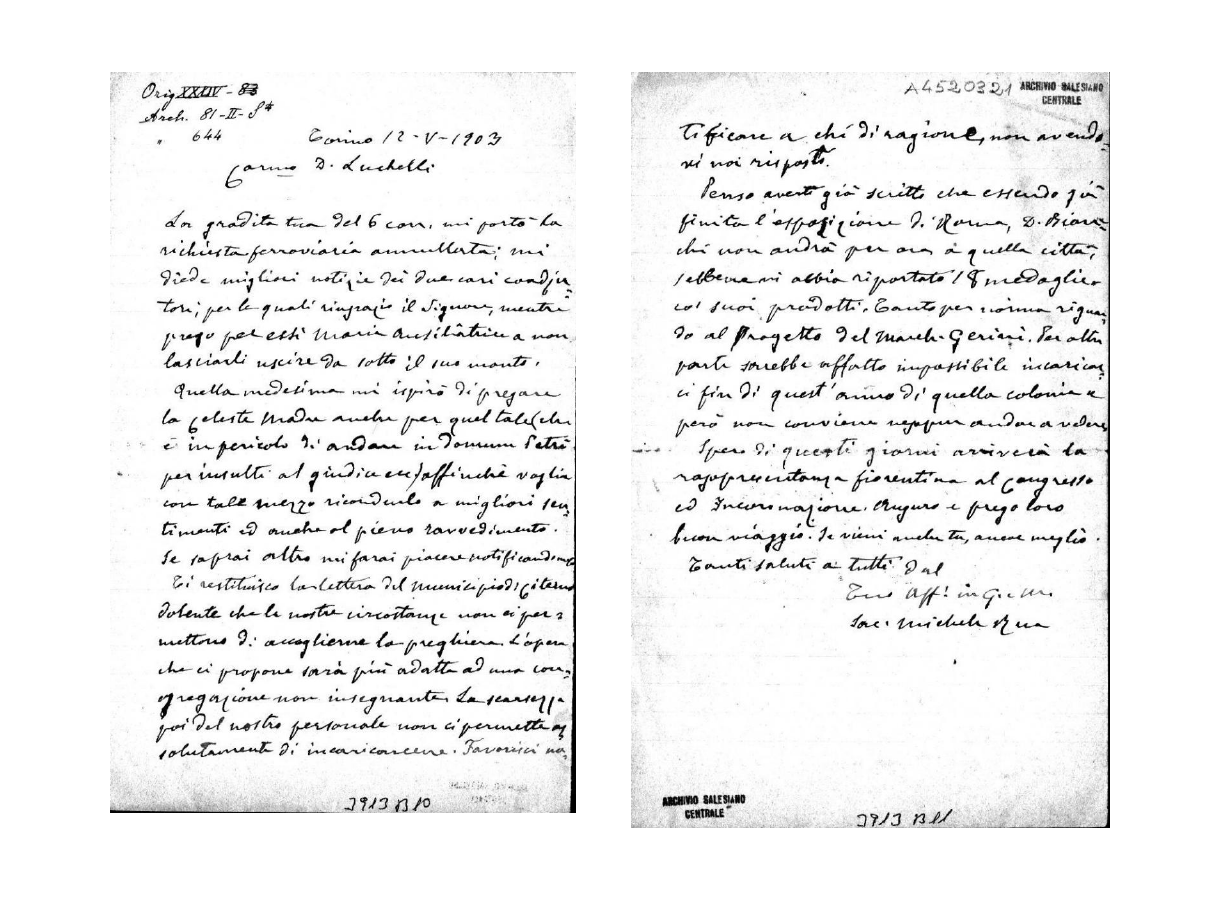 Orig XXXIV - 83
Arch. 81-II-S4
" 644
Torino 12-V-1903
Carmo D. Luchelli
La gradita tua del 6 corr. mi portò la
richiesta ferroviaria annullata; mi
diede migliori notizie dei due cari coadju=
tori; per le quali ringrazio il Signore, mentre
prego per essi Maria Ausiliatrice a non
lasciarli uscire da sotto il suo manto.
Quella medesima mi ispirò di pregare
la Celeste Madre anche per quel tale (che
è in pericolo di andare in domum Petri
per insulti al giudice ecc) affinchè voglia
con tale mezzo ricondurlo a migliori sen=
timenti ed anche al pieno ravvedimento.
Se saprai altro mi farai piacere notificandomelo
Ti restituisco la lettera del Municipio di Citerna
dolente che le nostre circostanze non ci per=
mettono di accoglierne la preghiera. L'opera
che ci propone sarà più adatta ad una con=
gregazione non insegnante. La scarsezza
poi del nostro personale non ci permette as
solutamente di incaricarcene. Favorisci no=
J913 B10
A4520321
ARCHIVIO SALESIANO
CENTRALE
tificare a chi di ragione, non avendo=
vi noi risposto.
Penso averti già scritto che essendo già
finita l'esposizione di Roma, D. Bian=
chi non andrà per ora a quella città,
sebbene vi abbia riportato 18 medaglie
coi suoi prodotti. Tanto per norma riguar=
do al Progetto del March. Gerini. Per altra
parte sarebbe affatto impossibile incaricar=
ci fin di quest'anno di quella colonia e
però non conviene neppur andare a vedere
Spero di questi giorni arriverà la
rappresentanza fiorentina al Congresso
ed Incoronazione. Auguro e prego loro
buon viaggio. Se vieni anche tu, ancor meglio.
Tanti saluti a tutti dal
Tuo Aff. in G. e M.
Sac. Michele Rua
ARCHIVIO SALESIANO
CENTRALE
J913 B11